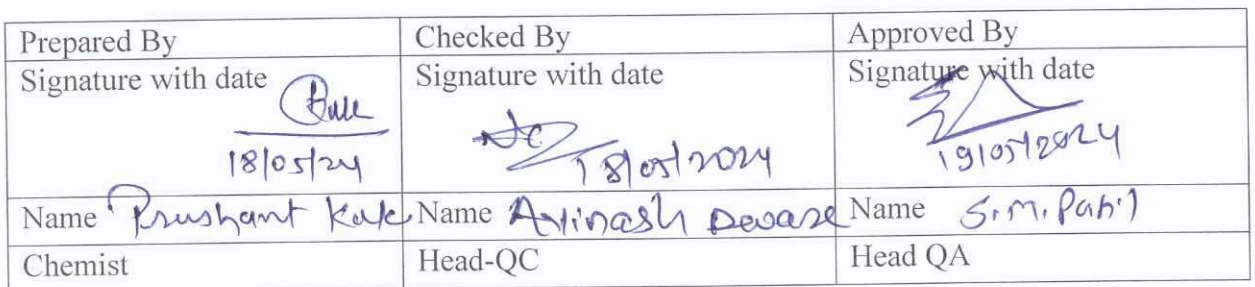 Prepared By Checked By Approved By
Signature with date Signature with date Signature with date
18/05/24 18/05/2024 19/05/2024
Name Prushant Kale Name Avinash Deware Name S.M. Patil
Chemist Head-QC Head QA